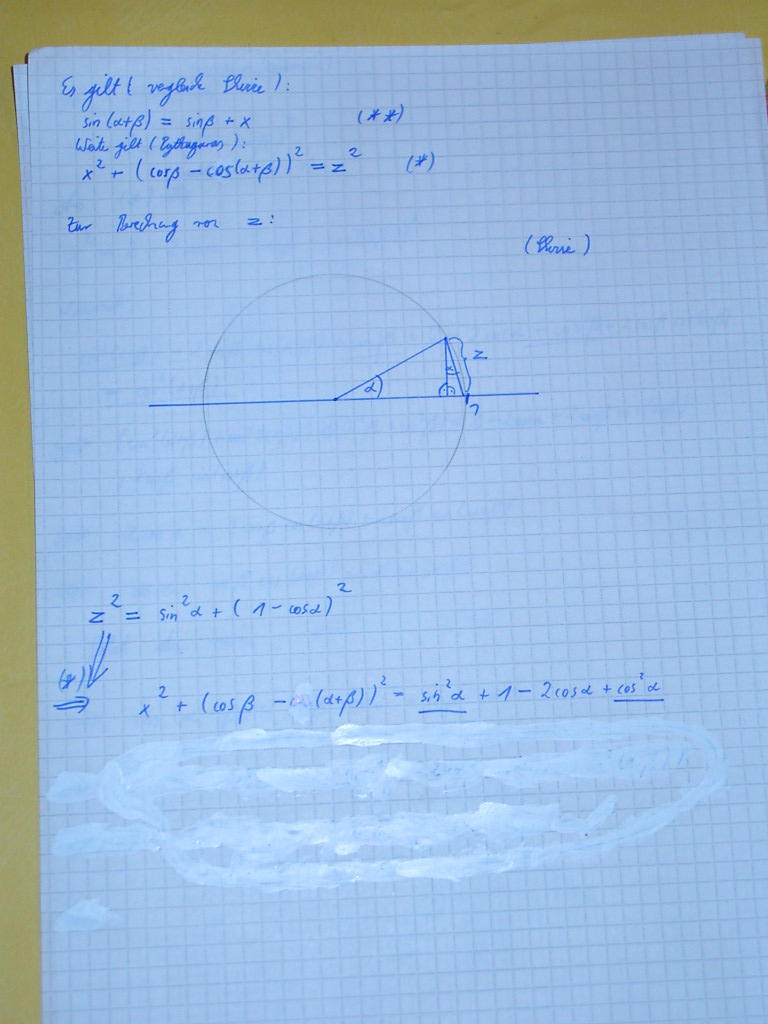 Es gilt (vergleiche Skizze):
sin(α+β) = sinβ + x (**)
Weiter gilt (Pythagoras):
x² + (cosβ − cos(α+β))² = z² (*)
Zur Berechnung von z:
(Skizze)
z
α
1
z² = sin²α + (1 − cosα)²
(*)
⇒ x² + (cosβ − cos(α+β))² = sin²α + 1 − 2cosα + cos²α